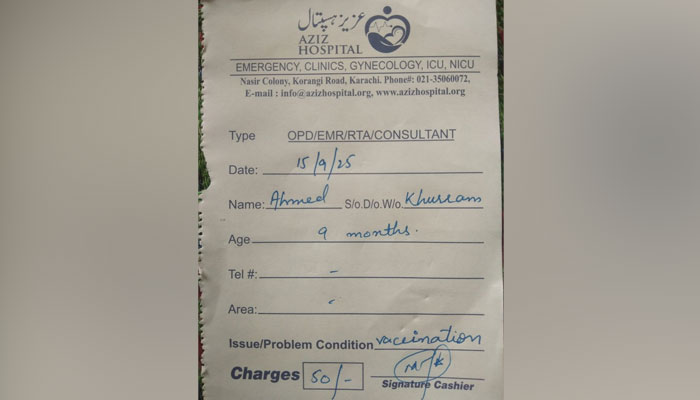 عزیز ہسپتال
AZIZ
HOSPITAL
EMERGENCY, CLINICS, GYNECOLOGY, ICU, NICU
Nasir Colony, Korangi Road, Karachi. Phone#: 021-35060072,
E-mail : info@azizhospital.org, www.azizhospital.org
Type OPD/EMR/RTA/CONSULTANT
Date: 15/9/25
Name: Ahmed S/o.D/o.W/o. Khurram
Age 9 months.
Tel #: -
Area:
Issue/Problem Condition vaccination
Charges 50/-
Signature Cashier